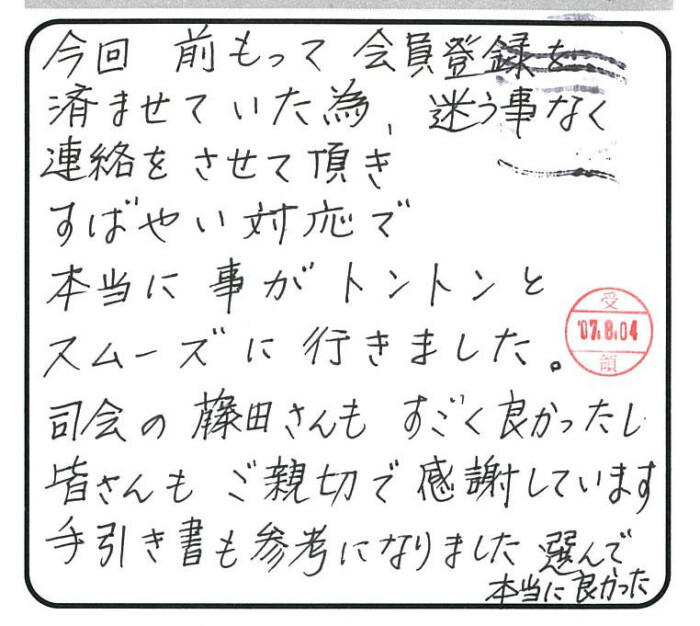 今回 前もって 会員登録を
済ませていた為、迷う事なく
連絡を させて頂き
すばやい 対応で
本当に 事が トントンと
スムーズに 行きました。
受
'07.8.04
領
司会の 藤田さんも すごく良かったし
皆さんも ご親切で 感謝しています
手引き書も参考になりました 選んで
本当に良かった